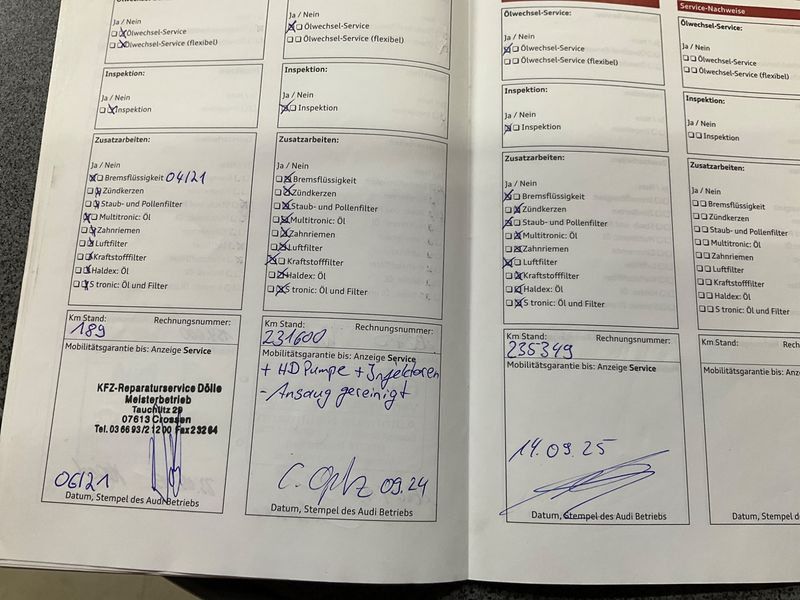 Ölwechsel-Service:
Ja / Nein
Ölwechsel-Service
Ölwechsel-Service (flexibel)
Inspektion:
Ja / Nein
Inspektion
Zusatzarbeiten:
Ja / Nein
Bremsflüssigkeit 04/21
Zündkerzen
Staub- und Pollenfilter
Multitronic: Öl
Zahnriemen
Luftfilter
Kraftstofffilter
Haldex: Öl
S tronic: Öl und Filter
Km Stand: Rechnungsnummer:
189
Mobilitätsgarantie bis: Anzeige Service
KFZ-Reparaturservice Dölle
Meisterbetrieb
Tauchlitz 29
07613 Crossen
Tel. 03 66 93/2 12 00 Fax 2 32 64
06/21
Datum, Stempel des Audi Betriebs
Ja / Nein
Ölwechsel-Service
Ölwechsel-Service (flexibel)
Inspektion:
Ja / Nein
Inspektion
Zusatzarbeiten:
Ja / Nein
Bremsflüssigkeit
Zündkerzen
Staub- und Pollenfilter
Multitronic: Öl
Zahnriemen
Luftfilter
Kraftstofffilter
Haldex: Öl
S tronic: Öl und Filter
Km Stand: Rechnungsnummer:
231600
Mobilitätsgarantie bis: Anzeige Service
+ HD Pumpe + Injektoren
- Ansaug gereinigt
09.24
Datum, Stempel des Audi Betriebs
Ölwechsel-Service:
Ja / Nein
Ölwechsel-Service
Ölwechsel-Service (flexibel)
Inspektion:
Ja / Nein
Inspektion
Zusatzarbeiten:
Ja / Nein
Bremsflüssigkeit
Zündkerzen
Staub- und Pollenfilter
Multitronic: Öl
Zahnriemen
Luftfilter
Kraftstofffilter
Haldex: Öl
S tronic: Öl und Filter
Km Stand: Rechnungsnummer:
235349
Mobilitätsgarantie bis: Anzeige Service
14.09.25
Datum, Stempel des Audi Betriebs
Service-Nachweise
Ölwechsel-Service:
Ja / Nein
Ölwechsel-Service
Ölwechsel-Service (flexibel)
Inspektion:
Ja / Nein
Inspektion
Zusatzarbeiten:
Ja / Nein
Bremsflüssigkeit
Zündkerzen
Staub- und Pollenfilter
Multitronic: Öl
Zahnriemen
Luftfilter
Kraftstofffilter
Haldex: Öl
S tronic: Öl und Filter
Km Stand:
Mobilitätsgarantie bis: Anz
Datum, Stempel d